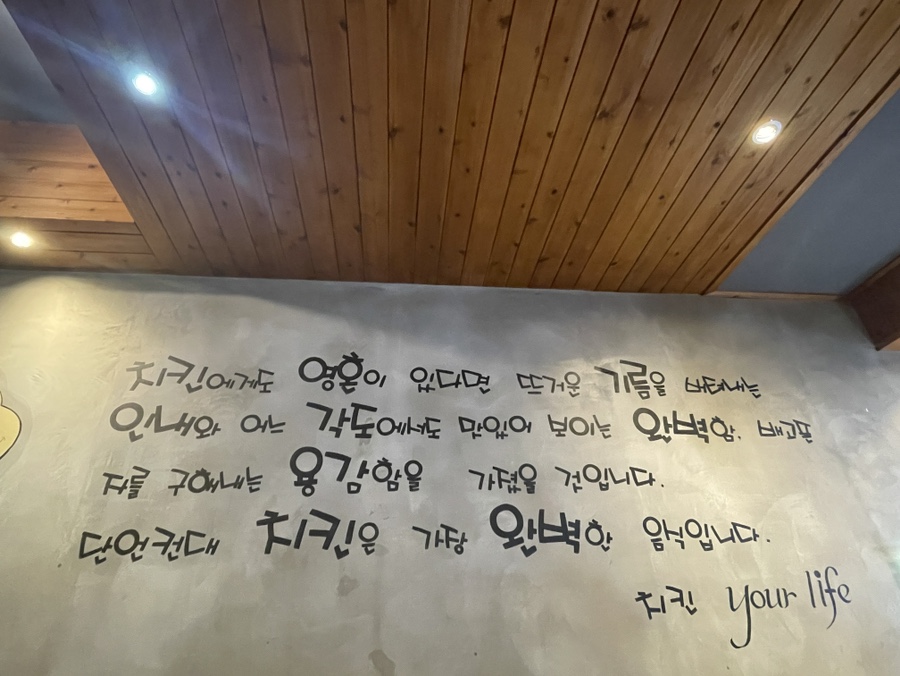 치킨에게도 영혼이 있다면 뜨거운 기름을 버텨내는
인내와 어느 각도에서도 맛있어 보이는 완벽함. 배고픈
자를 구해내는 용감함을 가졌을 것입니다.
단언컨대 치킨은 가장 완벽한 음식입니다.
치킨 your life